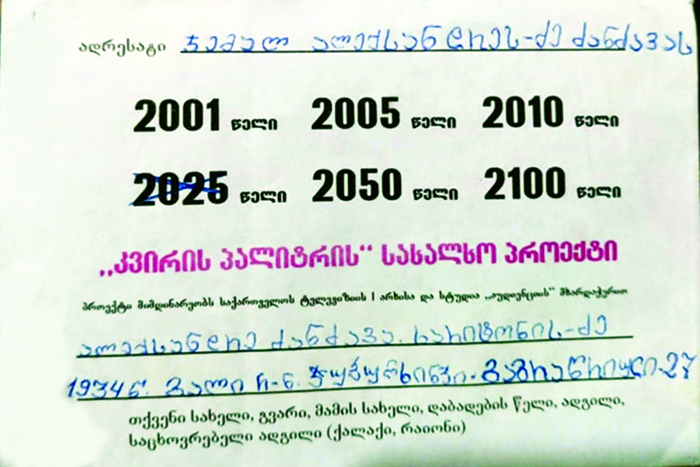 ადრესატი ჯემალ ალექსანდრეს-ძე ძანძავას
2001 წელი 2005 წელი 2010 წელი
2025 წელი 2050 წელი 2100 წელი
„კვირის პალიტრის“ სასალხო პროექტი
პროექტი მიმდინარეობს საქართველოს ტელევიზიის I არხისა და სტუდია „აუდიენციის“ მხარდაჭერით
ალექსანდრე ძანძავა. ხარიტონის-ძე
1934წ. გალი რ-ნ.
თქვენი სახელი, გვარი, მამის სახელი, დაბადების წელი, ადგილი,
საცხოვრებელი ადგილი (ქალაქი, რაიონი)